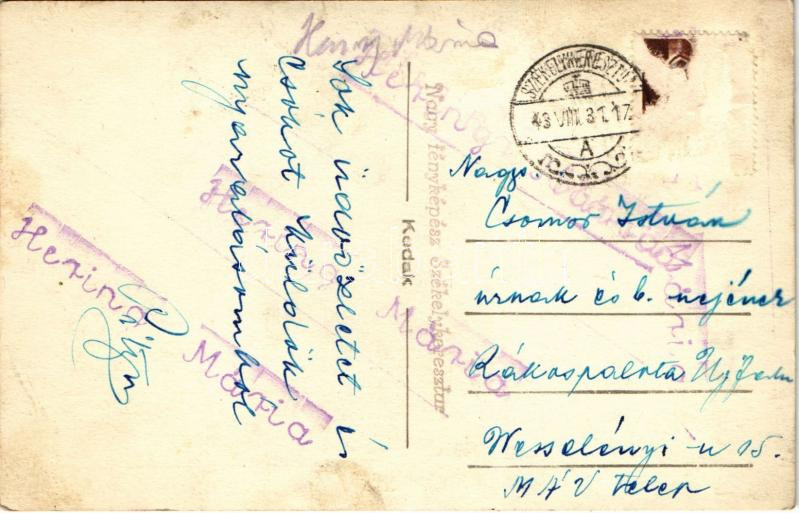 Sok üdvözletet és
csókot küldök
nyaralásomból
Herina
Mária
Mária
Kodak
Nagy fényképész Székelykeresztur
SZÉKELYKERESZTÚR
43 VIII 31. 17
A
Nagys.
Csomor István
úrnak és b. nejének
Rákospalota Ujfalu
Wesselényi u 15.
MÁV telep